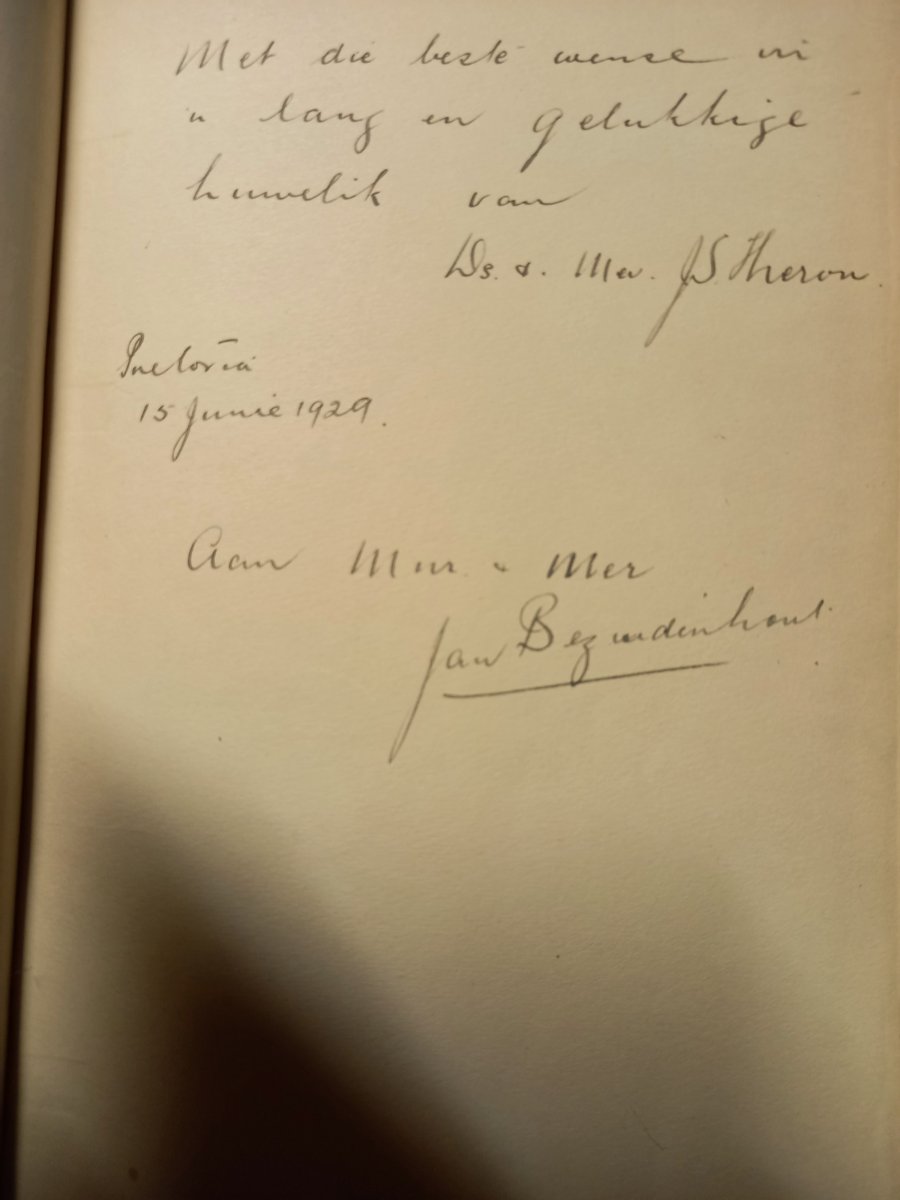 Met die beste wense vir
'n lang en gelukkige
huwelik van
Ds. & Mev. JS. Theron.
Pretoria
15 Junie 1929.
Aan Mnr. & Mev
Jan Bezuidenhout.